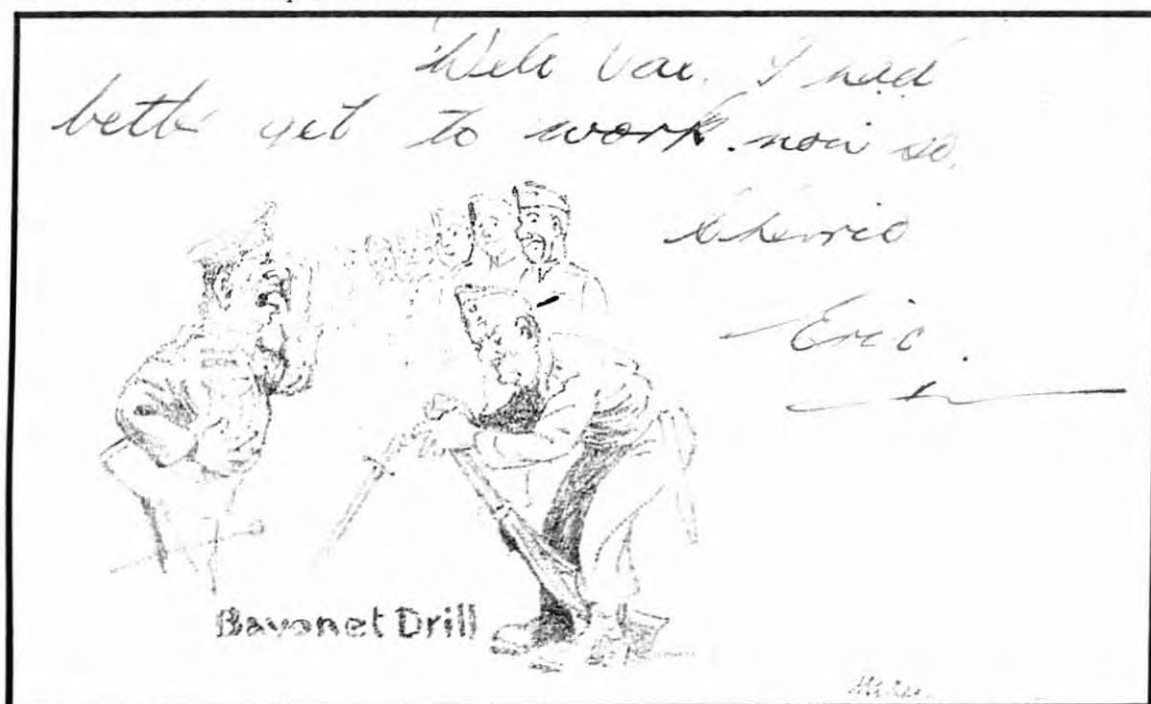 Well Val. I had
better get to work. now so.
Cheerio
Eric.
Bayonet Drill